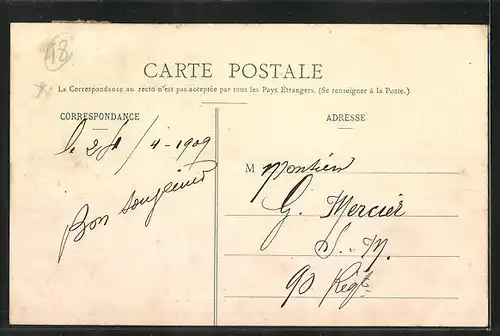 18
CARTE POSTALE
La Correspondance au recto n'est pas acceptée par tous les Pays Étrangers. (Se renseigner à la Poste.)
CORRESPONDANCE
le /4-1909
Bon
ADRESSE
M
G. Mercier
S.-M.
90 Régt.